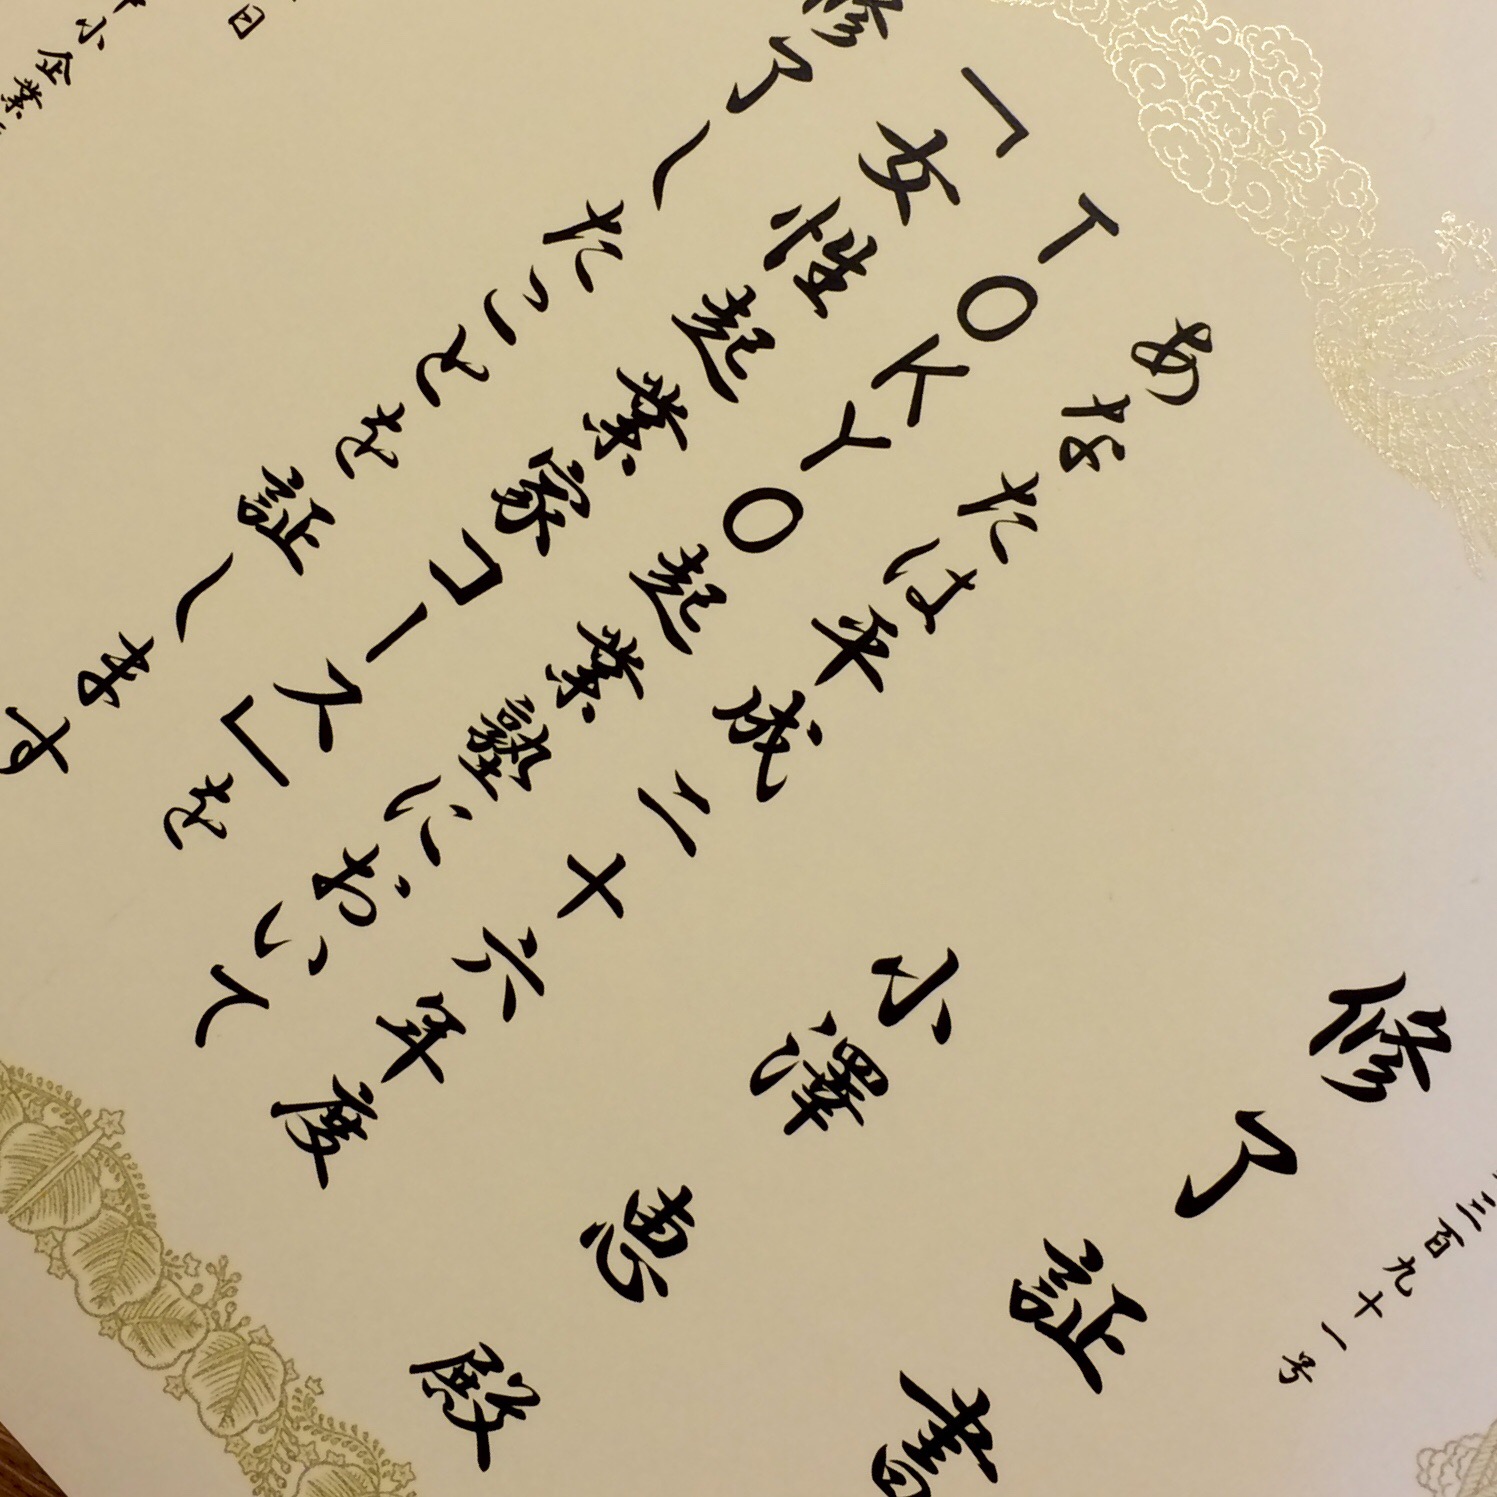 三百九十一号
修了証書
小澤 恵 殿
あなたは平成二十六年度
TOKYO起業塾において
「女性起業家コース」を
修了したことを証します
日
小企業